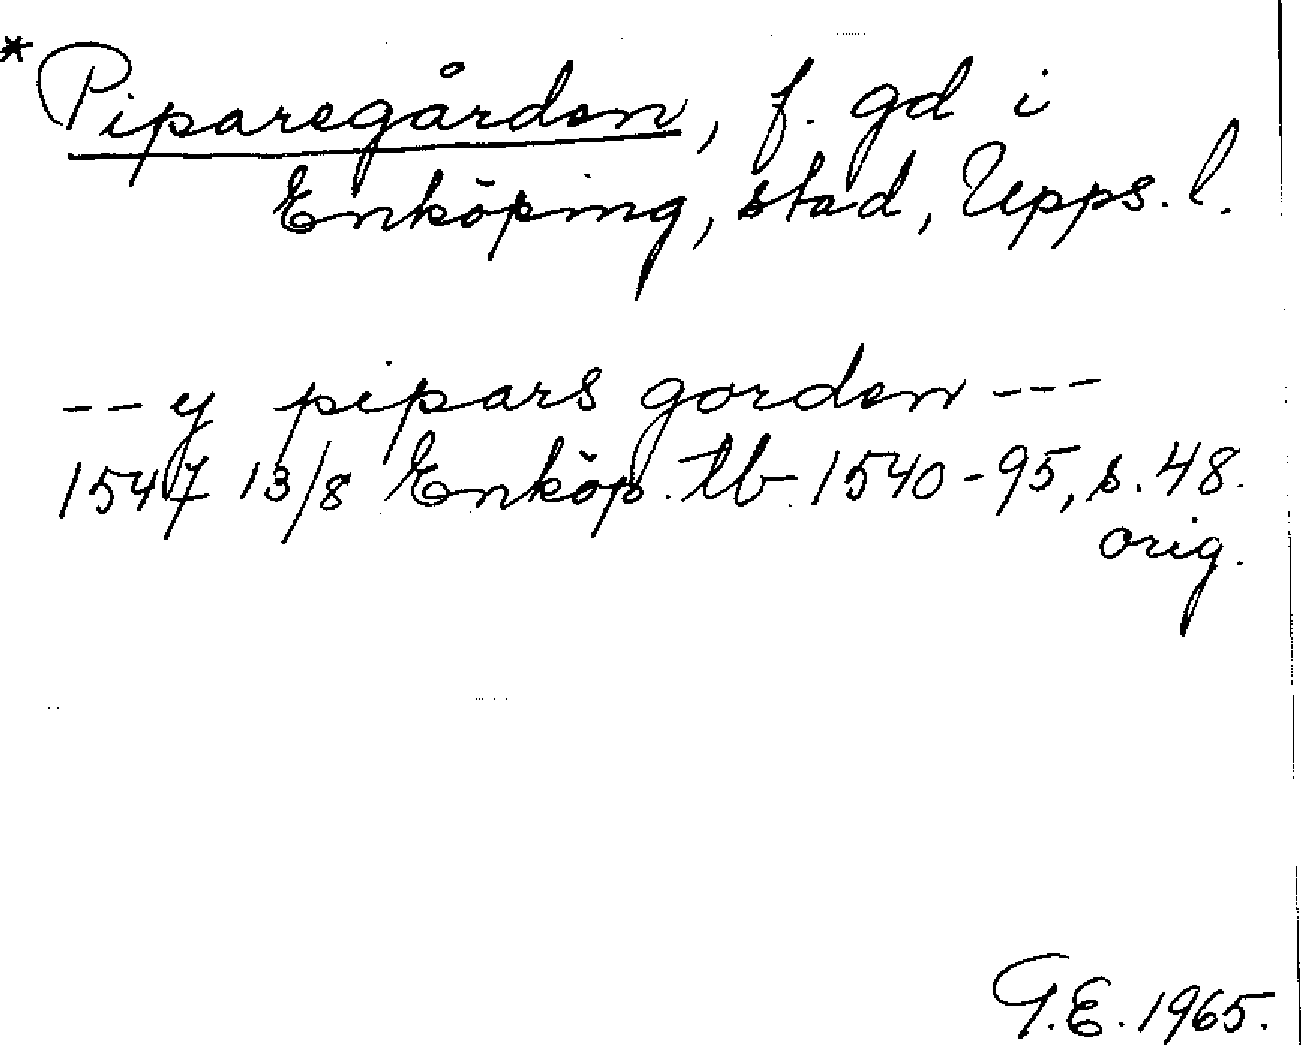 *Piparegården, f. gd i
Enköping, stad, Upps. l.
--y pipars gorden---
1547 13/8 Enköp. tb. 1540-95, s. 48.
orig.
G.E. 1965.